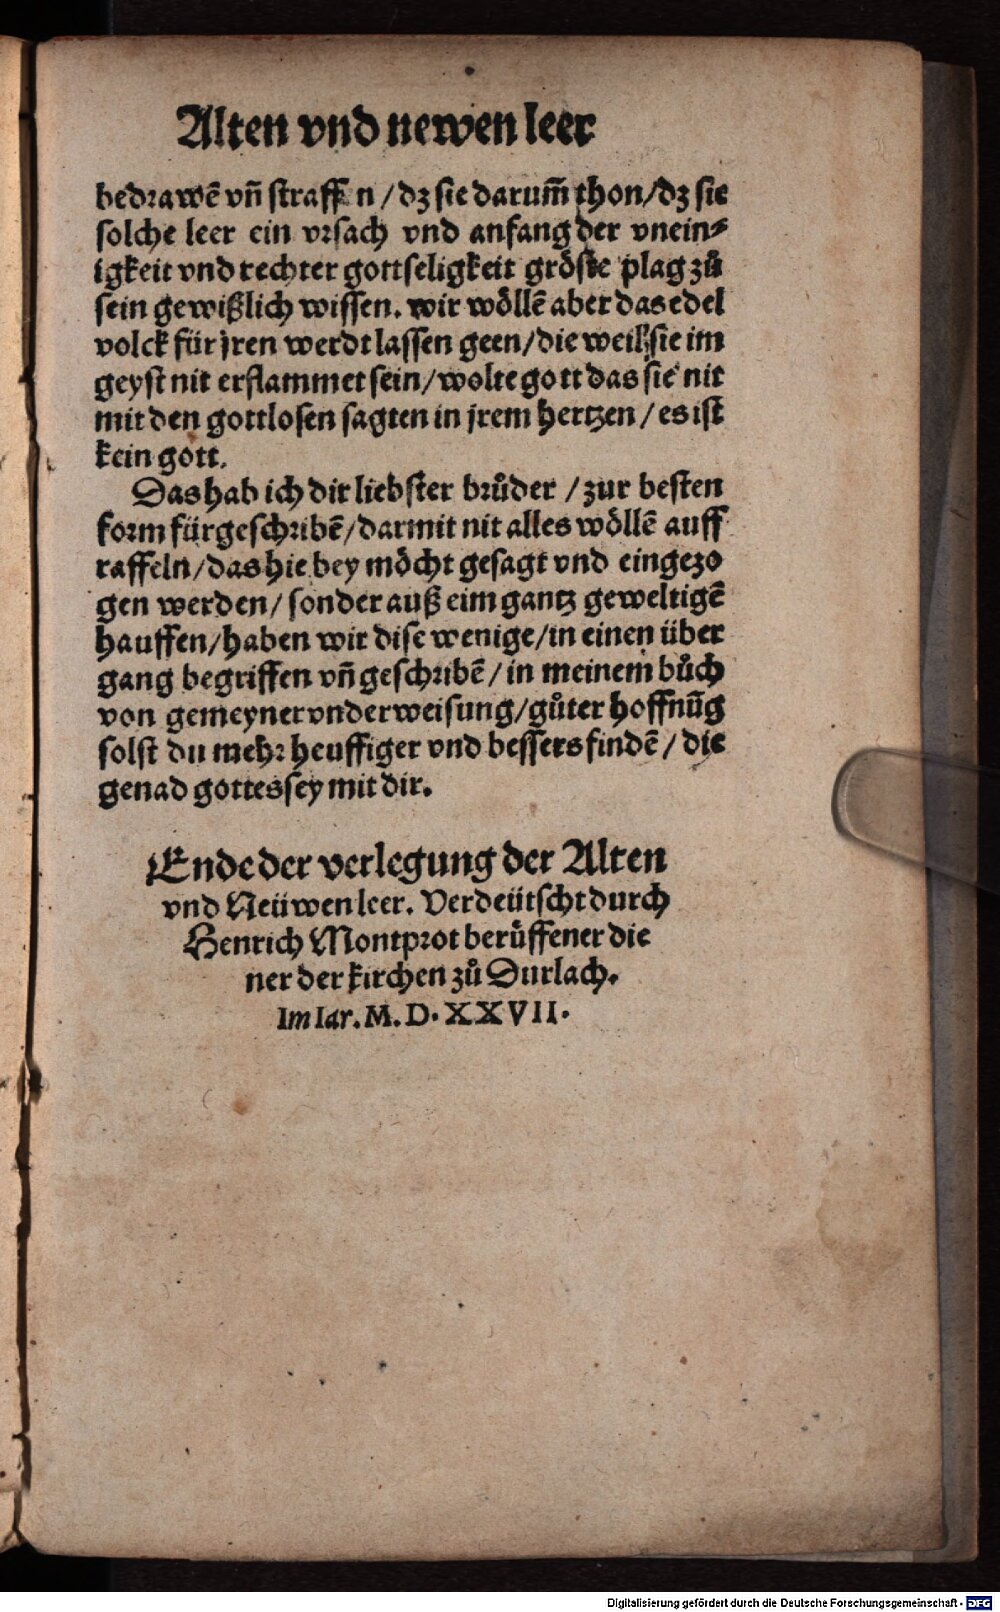 Alten vnd newen leer
bedrawẽ vñ straff n / dz sie darum̃ thon/dz sie
solche leer ein vrsach vnd anfang der vnein⸗
igkeit vnd rechter gottseligkeit gröste plag zů
sein gewißlich wissen. wir wöllẽ aber das edel
volck für jren werdt lassen geen/die weil sie im
geyst nit erflammet sein/wolte gott das sie nit
mit den gottlosen sagten in jrem hertzen / es ist
kein gott.
Das hab ich dir liebster brůder / zur besten
form fürgeschribẽ/darmit nit alles wöllẽ auff
raffeln/das hie bey möcht gesagt vnd eingezo
gen werden/ sonder auß eim gantz geweltigẽ
hauffen/haben wir dise wenige/in einen über
gang begriffen vñ geschribẽ/ in meinem bůch
von gemeyner vnderweisung/gůter hoffnũg
solst du mehr heuffiger vnd bessers findẽ / die
genad gottes sey mit dir.
Ende der verlegung der Alten
vnd Neüwen leer. Verdeütscht durch
Henrich Montprot berůffener die
ner der kirchen zů Durlach.
Im Iar. M. D. XXVII.
Digitalisierung gefördert durch die Deutsche Forschungsgemeinschaft - DFG